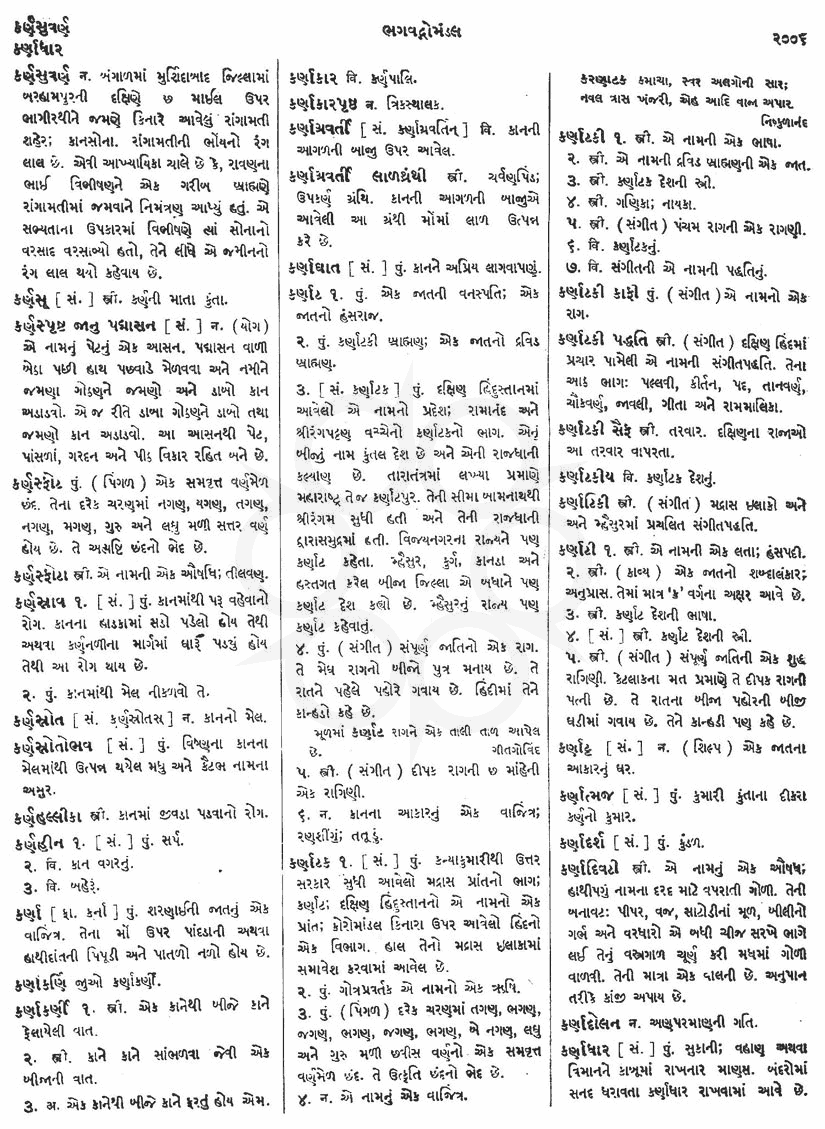 કર્ણસુવર્ણ
કર્ણાધાર
ભગવદ્ગોમંડલ
૨૦૦૬
કર્ણસુવર્ણ ન. બંગાળમાં મુર્શિદાબાદ જિલ્લામાં
બરહામપુરની દક્ષિણે ૭ માઈલ ઉપર
ભાગીરથીને જમણે કિનારે આવેલું રાંગામતી
શહેર; કાનસોના. રાંગામતીની ભોંયનો રંગ
લાલ છે. એવી આખ્યાયિકા ચાલે છે કે, રાવણના
ભાઈ વિભીષણને એક ગરીબ બ્રાહ્મણે
રાંગામતીમાં જમવાને નિમંત્રણ આપ્યું હતું. એ
સભ્યતાના ઉપકારમાં વિભીષણે ત્યાં સોનાનો
વરસાદ વરસાવ્યો હતો, તેને લીધે એ જમીનનો
રંગ લાલ થયો કહેવાય છે.
કર્ણસૂ [ સં. ] સ્ત્રી. કર્ણની માતા કુંતા.
કર્ણસ્પૃષ્ટ જાનુ પદ્માસન [ સં. ] ન. (યોગ)
એ નામનું પેટનું એક આસન. પદ્માસન વાળી
બેઠા પછી હાથ પછવાડે મેળવવા અને નમીને
જમણા ગોઠણને જમણો અને ડાબો કાન
અડાડવો. એ જ રીતે ડાબા ગોઠણને ડાબો તથા
જમણો કાન અડાડવો. આ આસનથી પેટ,
પાંસળાં, ગરદન અને પીઠ વિકાર રહિત બને છે.
કર્ણસ્ફોટ પું. ( પિંગળ ) એક સમવૃત્ત વર્ણમેળ
છંદ. તેના દરેક ચરણમાં નગણ, યગણ, તગણ,
નગણ, મગણ, ગુરુ અને લઘુ મળી સત્તર વર્ણ
હોય છે. તે અત્યષ્ટિ છંદનો ભેદ છે.
કર્ણસ્ફોટા સ્ત્રી. એ નામની એક ઔષધિ; તીલવણ.
કર્ણસ્ત્રાવ ૧. [ સં. ] પું. કાનમાંથી પરૂ વહેવાનો
રોગ. કાનના હાડકામાં સડો પડેલો હોય તેથી
અથવા કર્ણનળીના માર્ગમાં ધારૂં પડયું હોય
તેથી આ રોગ થાય છે.
૨. પું. કાનમાંથી મેલ નીકળવો તે.
કર્ણસ્ત્રોત [ સં. કર્ણસ્ત્રોતસ ] ન. કાનનો મેલ.
કર્ણસ્ત્રોતોભવ [ સં. ] પું. વિષ્ણુના કાનના
મેલમાંથી ઉત્પન્ન થયેલ મધુ અને કૈટભ નામના
અસુર.
કર્ણહલ્લીકા સ્ત્રી. કાનમાં જીવડા પડવાનો રોગ.
કર્ણહીન ૧. [ સં. ] પું. સર્પ.
૨. વિ. કાન વગરનું.
૩. વિ. બહેરૂં.
કર્ણા [ ફા. કર્ના ] પું. શરણાઈની જાતનું એક
વાજિંત્ર. તેના મોં ઉપર પાંદડાની અથવા
હાથીદાંતની પિપૂડી અને પાતળો નળો હોય છે.
કર્ણાકર્ણિ જુઓ કર્ણાકર્ણી.
કર્ણાકર્ણી ૧. સ્ત્રી. એક કાનેથી બીજે કાને
ફેલાયેલી વાત.
૨. સ્ત્રી. કાને કાને સાંભળવા જેવી એક
બીજાની વાત.
૩. અ. એક કાનેથી બીજે કાને ફરતું હોય એમ.
કર્ણાકાર વિ. કર્ણપાલિ.
કર્ણાકારપૃષ્ઠ ન. ત્રિકસ્થાલક.
કર્ણાગ્રવર્તી [ સં. કર્ણાગ્રવર્તિન્ ] વિ. કાનની
આગળની બાજુ ઉપર આવેલ.
કર્ણાગ્રવર્તી લાળગ્રંથી સ્ત્રી. ચર્વણપિંડ;
ઉપકર્ણ ગ્રંથિ. કાનની આગળની બાજુએ
આવેલી આ ગ્રંથી મોંમાં લાળ ઉત્પન્ન
કરે છે.
કર્ણાઘાત [ સં. ] પું. કાનને અપ્રિય લાગવાપણું.
કર્ણાટ ૧. પું. એક જાતની વનસ્પતિ; એક
જાતનો હંસરાજ.
૨. પું. કર્ણાટકી બ્રાહ્મણ; એક જાતનો દ્રવિડ
બ્રાહ્મણ.
૩. [ સં. કર્ણાટક ] પું. દક્ષિણ હિંદુસ્તાનમાં
આવેલો એ નામનો પ્રદેશ; રામાનંદ અને
શ્રીરંગપટ્ટણ વચ્ચેનો કર્ણાટકનો ભાગ. એનું
બીજું નામ કુંતલ દેશ છે અને એની રાજધાની
કલ્યાણ છે. તારાતંત્રમાં લખ્યા પ્રમાણે
મહારાષ્ટ્ર તેજ કર્ણાટપુર. તેની સીમા બામનાથથી
શ્રીરંગમ સુધી હતી અને તેની રાજધાની
દ્વારાસમુદ્રમાં હતી. વિજયનગરના રાજ્યને પણ
કર્ણાટ કહેતા. મ્હૈસુર, કુર્ગ, કાનડા અને
હસ્તગત કરેલ બીજા જિલ્લા એ બધાને પણ
કર્ણાટ દેશ કહ્યો છે. મ્હૈસુરનું રાજ્ય પણ
કર્ણાટ કહેવાતું.
૪. પું. ( સંગીત ) સંપૂર્ણ જાતિનો એક રાગ.
તે મેઘ રાગનો બીજો પુત્ર મનાય છે. તે
રાતને પહેલે પહોરે ગવાય છે. હિંદીમાં તેને
કાન્હડો કહે છે.
મૂળમાં કર્ણાટ રાગને એક તાલી તાળ આપેલ
છે. ગીતગોવિંદ
૫. સ્ત્રી. ( સંગીત ) દીપક રાગની ૭ માંહેની
એક રાગિણી.
૬. ન. કાનના આકારનું એક વાજિંત્ર;
રણશીંગું; તતૂડું.
કર્ણાટક ૧. [ સં. ] પું. કન્યાકુમારીથી ઉત્તર
સરકાર સુધી આવેલો મદ્રાસ પ્રાંતનો ભાગ;
કર્ણાટ; દક્ષિણ હિંદુસ્તાનનો એ નામનો એક
પ્રાંત; કોરોમાંડલ કિનારા ઉપર આવેલો હિંદનો
એક વિભાગ. હાલ તેનો મદ્રાસ ઇલાકામાં
સમાવેશ કરવામાં આવેલ છે.
૨. પું. ગોત્રપ્રવર્તક એ નામનો એક ઋષિ.
૩. પું. (પિંગળ) દરેક ચરણમાં તગણ, ભગણ,
જગણ, ભગણ, જગણ, ભગણ, બે નગણ, લઘુ
અને ગુરુ મળી છવીસ વર્ણનો એક સમવૃત્ત
વર્ણમેળ છંદ. તે ઉત્કૃતિ છંદનો ભેદ છે.
૪. ન. એ નામનું એક વાજિંત્ર.
કરણાટક કમાચા, સ્વર અલગોની સાર;
નવલ ત્રાસ ખંજરી, એહ આદિ વાજ અપાર.
નિષ્કુળાનંદ
કર્ણાટકી ૧. સ્ત્રી. એ નામની એક ભાષા.
૨. સ્ત્રી. એ નામની દ્રવિડ બ્રાહ્મણની એક જાત.
૩. સ્ત્રી. કર્ણાટક દેશની સ્ત્રી.
૪. સ્ત્રી. ગણિકા; નાયકા.
૫. સ્ત્રી. (સંગીત) પંચમ રાગની એક રાગણી.
૬. વિ. કર્ણાટકનું.
૭. વિ. સંગીતની એ નામની પદ્ધતિનું.
કર્ણાટકી કાફી પું. (સંગીત) એ નામનો એક
રાગ.
કર્ણાટકી પદ્ધતિ સ્ત્રી. (સંગીત) દક્ષિણ હિંદમાં
પ્રચાર પામેલી એ નામની સંગીતપદ્ધતિ. તેના
આઠ ભાગ: પલ્લવી, કીર્તન, પદ, તાનવર્ણ,
ચૌકવર્ણ, જાવલી, ગીતા અને રામમાલિકા.
કર્ણાટકી સૈફ સ્ત્રી. તરવાર. દક્ષિણના રાજાઓ
આ તરવાર વાપરતા.
કર્ણાટકીય વિ. કર્ણાટક દેશનું.
કર્ણાટિકી સ્ત્રી. (સંગીત) મદ્રાસ ઇલાકો અને
અને મ્હૈસુરમાં પ્રચલિત સંગીતપદ્ધતિ.
કર્ણાટી ૧. સ્ત્રી. એ નામની એક લતા; હંસપદી.
૨. સ્ત્રી. (કાવ્ય) એક જાતનો શબ્દાલંકાર;
અનુપ્રાસ. તેમાં માત્ર 'ક' વર્ગના અક્ષર આવે છે.
૩. સ્ત્રી. કર્ણાટ દેશની ભાષા.
૪. [ સં. ] સ્ત્રી. કર્ણાટ દેશની સ્ત્રી.
૫. સ્ત્રી. (સંગીત) સંપૂર્ણ જાતિની એક શુદ્ધ
રાગિણી. કેટલાકના મત પ્રમાણે તે દીપક રાગની
પત્ની છે. તે રાતના બીજા પહોરની બીજી
ઘડીમાં ગવાય છે. તેને કાન્હડી પણ કહે છે.
કર્ણાટ્ટ [ સં. ] ન. (શિલ્પ) એક જાતના
આકારનું ઘર.
કર્ણાત્મજ [ સં. ] પું. કુમારી કુંતાના દીકરા
કર્ણનો કુમાર.
કર્ણાદર્શ [ સં. ] પું. કુંડળ.
કર્ણાદિવટી સ્ત્રી. એ નામનું એક ઔષધ;
હાથીપગું નામના દરદ માટે વપરાતી ગોળી. તેની
બનાવટ: પીપર, વજ, સાટોડીનાં મૂળ, બીલીનો
ગર્ભ અને વરધારો એ બધી ચીજ સરખે ભાગે
લઈ તેનું વસ્ત્રગાળ ચૂર્ણ કરી મધમાં ગોળી
વાળવી. તેની માત્રા એક વાલની છે. અનુપાન
તરીકે કાંજી અપાય છે.
કર્ણાદોલન ન. અણુપરમાણુની ગતિ.
કર્ણાધાર [ સં. ] પું. સુકાની; વહાણ અથવા
વિમાનને કાબૂમાં રાખનાર માણસ. બંદરોમાં
સનદ ધરાવતા કર્ણાધાર રાખવામાં આવે છે.